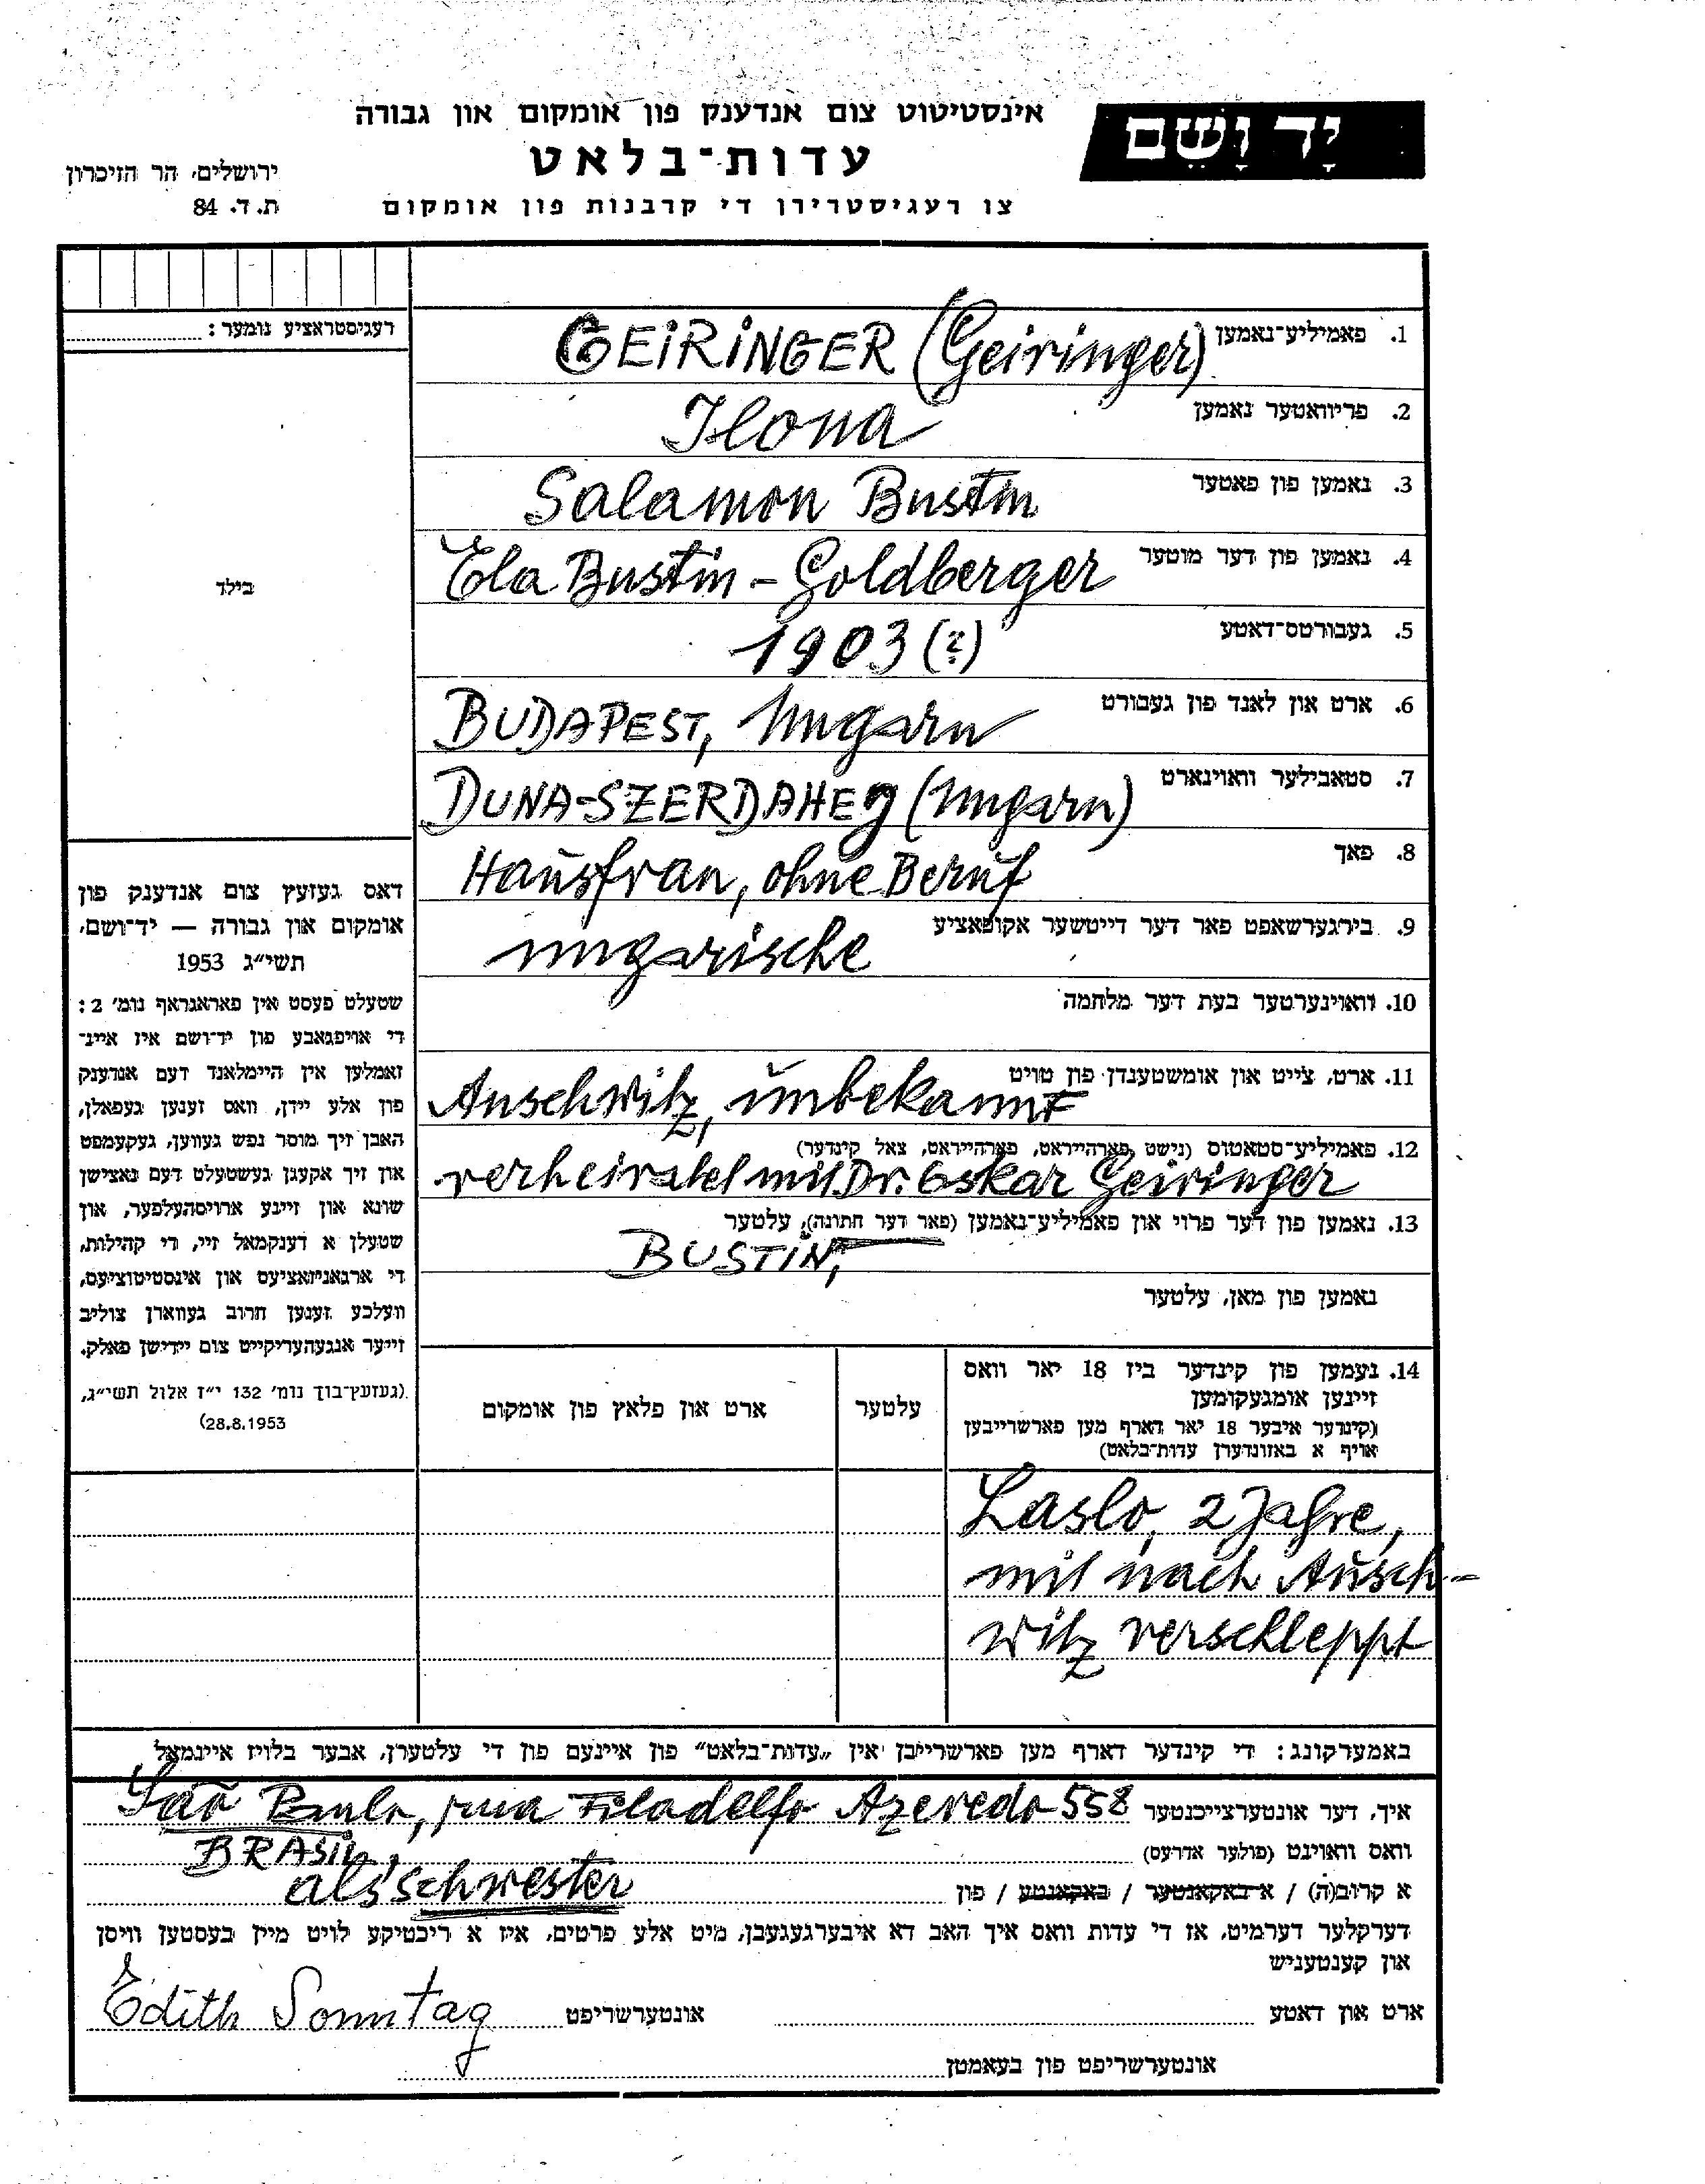 יָד וָשֵׁם
אינסטיטוט צום אנדענק פון אומקום און גבורה
עדות־בלאט
צו רעגיסטרירן די קרבנות פון אומקום
ירושלים, הר הזיכרון
ת. ד. 84
רעגיסטראציע נומער :
בילד
1. פאמיליע־נאמען GEIRINGER (Geiringer)
2. פריוואטער נאמען Ilona
3. נאמען פון פאטער Salamon Bustin
4. נאמען פון דער מוטער Ela Bustin - Goldberger
5. געבורטס־דאטע 1903 (?)
6. ארט און לאנד פון געבורט BUDAPEST, Ungarn
7. סטאבילער וואוינארט DUNA-SZERDAHEg (Ungarn)
8. פאך Hausfrau, ohne Beruf
9. בירגערשאפט פאר דער דייטשער אקופאציע ungarische
10. וואוינערטער בעת דער מלחמה
11. ארט, צייט און אומשטענדן פון טויט Auschwitz, unbekannt
12. פאמיליע־סטאטוס (נישט פארהייראט, פארהייראט, צאל קינדער)
verheiratet mit Dr. Oskar Geiringer
13. נאמען פון דער פרוי און פאמיליע־נאמען (פאר דער חתונה), עלטער
BUSTIN,
נאמען פון מאן, עלטער
14. נעמען פון קינדער ביז 18 יאר וואס
זיינען אומגעקומען
(קינדער איבער 18 יאר דארף מען פארשרייבן
אויף א באזונדערן עדות־בלאט)
עלטער
ארט און פלאץ פון אומקום
Laslo, 2 Jahre,
mit nach Ausch-
witz verschleppt
דאס געזעץ צום אנדענק פון
אומקום און גבורה — יד־ושם,
תשי״ג 1953
שטעלט פעסט אין פאראגראף נומ׳ 2 :
די אויפגאבע פון יד־ושם איז איינ־
זאמלען אין היימלאנד דעם אנדענק
פון אלע יידן, וואס זענען געפאלן,
האבן זיך מוסר נפש געווען, געקעמפט
און זיך אקעגן געשטעלט דעם נאצישן
שונא און זיינע ארויסהעלפער, און
שטעלן א דענקמאל זיי, די קהילות,
די ארגאניזאציעס און אינסטיטוציעס,
וועלכע זענען חרוב געווארן צוליב
זייער אנגעהעריקייט צום יידישן פאלק.
(געזעץ־בוך נומ׳ 132 י״ז אלול תשי״ג,
28.8.1953)
באמערקונג: די קינדער דארף מען פארשרייבן אין „עדות־בלאט״ פון איינעם פון די עלטערן, אבער בלויז איינמאל
איך, דער אונטערצייכנטער São Paulo, rua Filadelfo Azevedo 558
וואס וואוינט (פולער אדרעס) BRASIL,
א קרוב(ה) / א באקאנטער / באקאנטע / פון als Schwester
דערקלער דערמיט, אז די עדות וואס איך האב דא איבערגעגעבן, מיט אלע פרטים, איז א ריכטיקע לויט מיין בעסטען וויסן
און קענטעניש
ארט און דאטע אונטערשריפט Edith Sonntag
אונטערשריפט פון בעאמטן